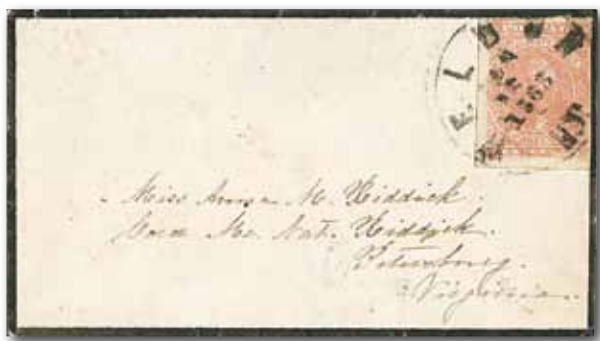 WELDON
N.C.
1863
Miss Anna M. Riddick.
Care Mr. Nat. Riddick.
Petersburg.
Virginia.